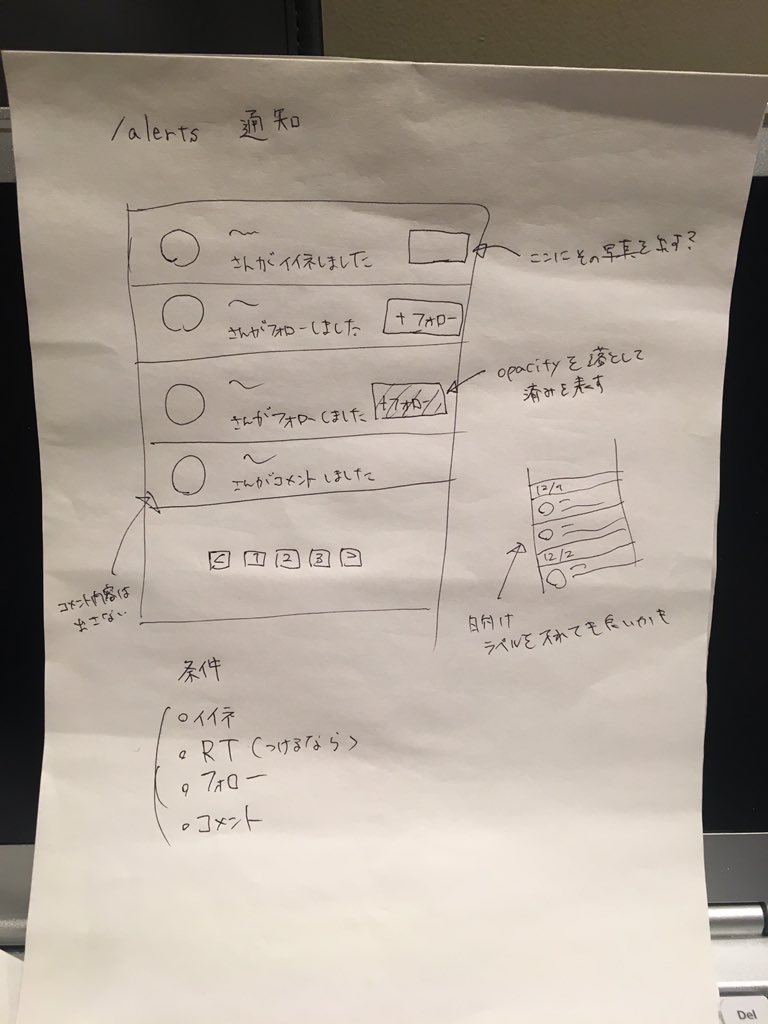 /alerts 通知
〜
さんがイイネしました
ここにその写真を出す?
〜
さんがフォローしました
+フォロー
opacityを落として
済みを表す
〜
さんがフォローしました
+フォロー
〜
さんがコメントしました
< 1 2 3 >
コメント内容は
出さない
12/
12/2
日付け
ラベルを入れても良いかも
条件
○イイネ
○RT(つけるなら)
○フォロー
○コメント
Del